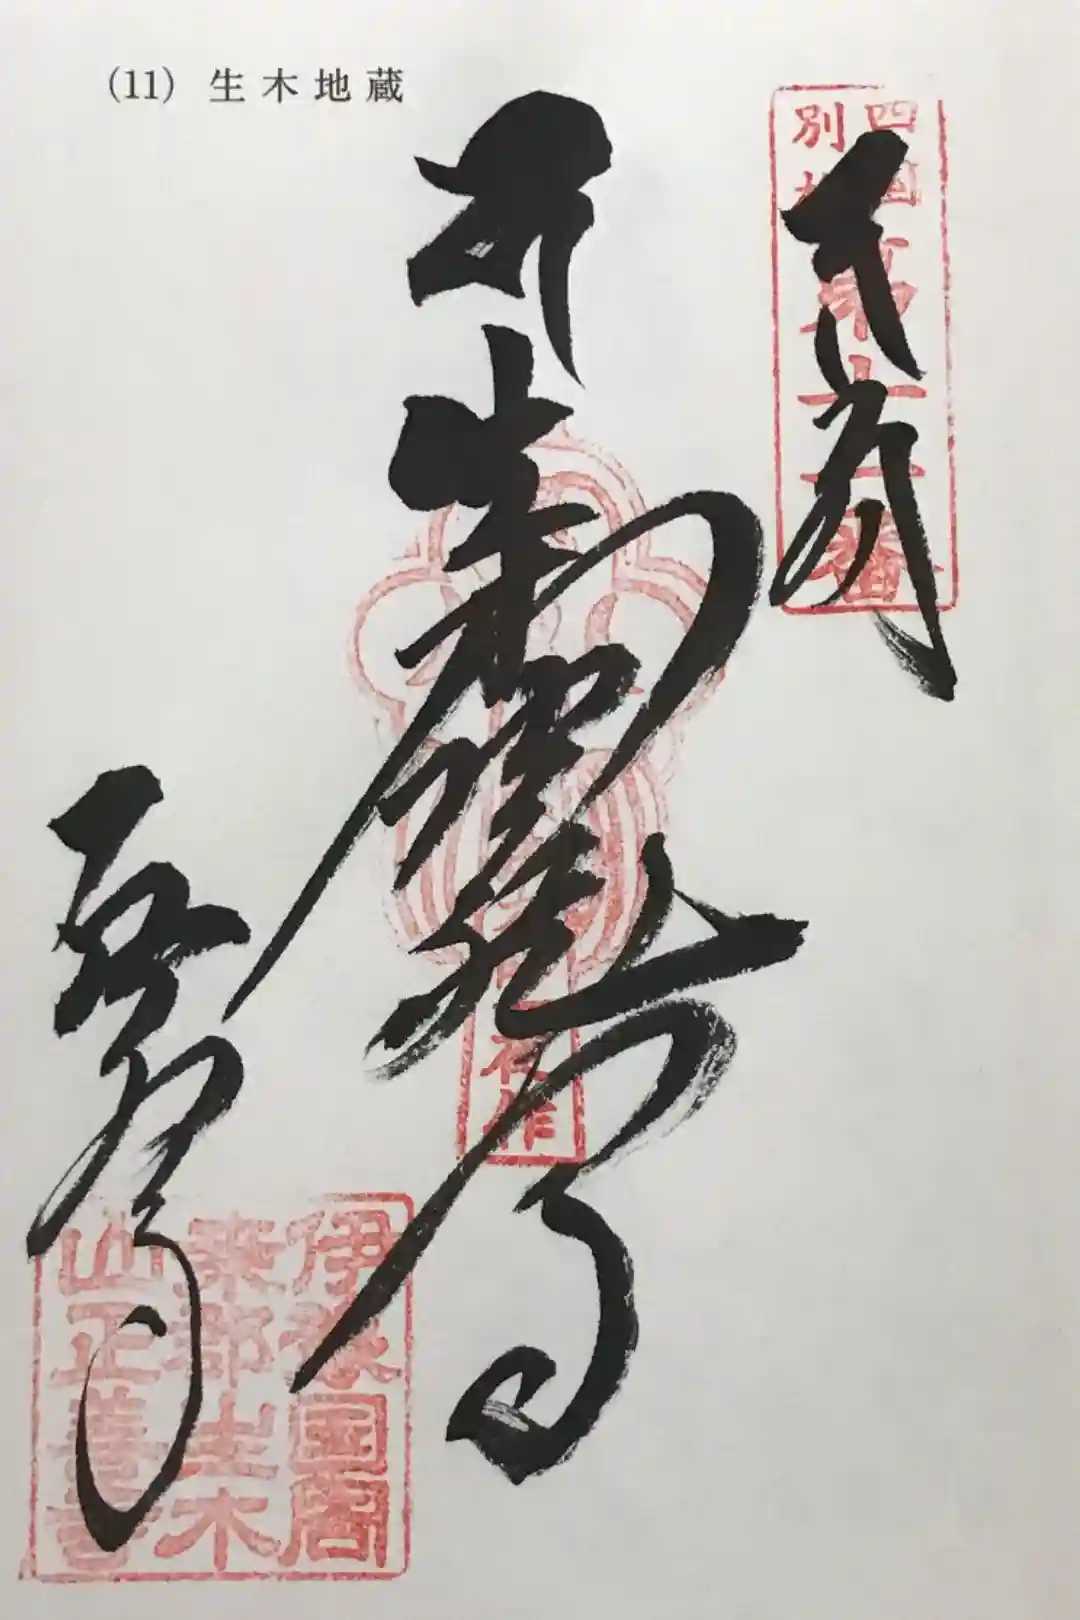 (11) 生木地蔵
四国
別格
第十一番
奉拝
生木地蔵尊
夜作
伊予国周
桑郡生木
山正善寺